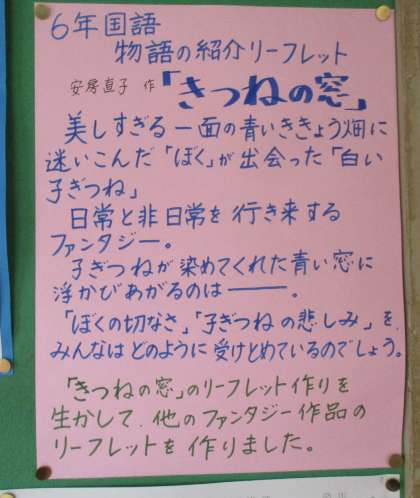 6年国語
物語の紹介リーフレット
安房直子 作「きつねの窓」
美しすぎる一面の青いききょう畑に
迷いこんだ「ぼく」が出会った「白い
子ぎつね」
日常と非日常を行き来する
ファンタジー。
子ぎつねが染めてくれた青い窓に
浮かびあがるのは――。
「ぼくの切なさ」「子ぎつねの悲しみ」を
みんなはどのように受けとめているのでしょう。
「きつねの窓」のリーフレット作りを
生かして、他のファンタジー作品の
リーフレットを作りました。